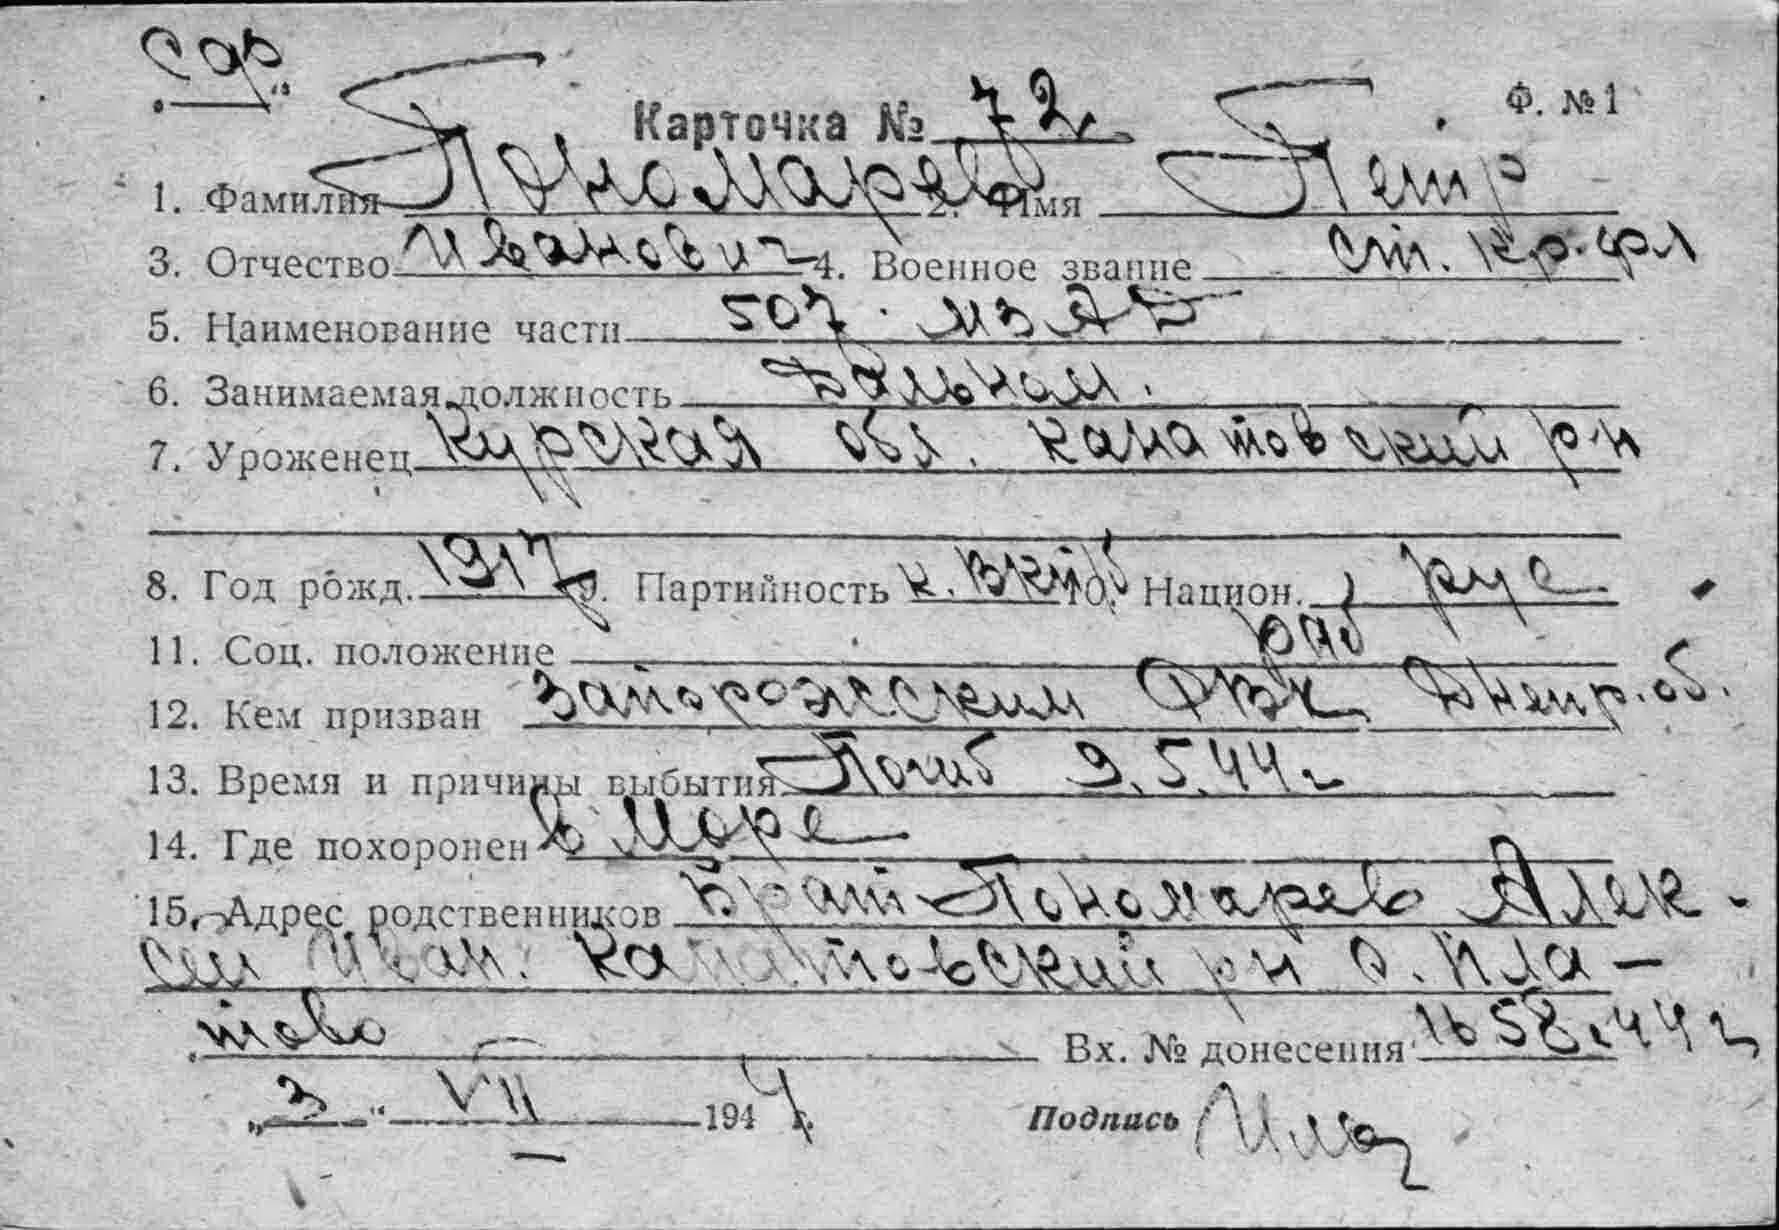 сдр
Карточка № 72 Ф. № 1
1. Фамилия Пономарев 2. Имя Петр
3. Отчество Иванович 4. Военное звание ст. кр. фл
5. Наименование части 507. МЗАБ
6. Занимаемая должность Дальном.
7. Уроженец Курская обл. Канатовский р-н
8. Год рожд. 1917 9. Партийность к. ВКПб 10. Национ. рус
11. Соц. положение раб
12. Кем призван Запорожским РВК Днепр. об.
13. Время и причины выбытия Погиб 9.5.44 г
14. Где похоронен в море
15. Адрес родственников Брат Пономарев Алек-
сей Иван. Канатовский рн с. Пла-
тово Вх. № донесения 1658.44 г
„3“ VII 1944 г. Подпись